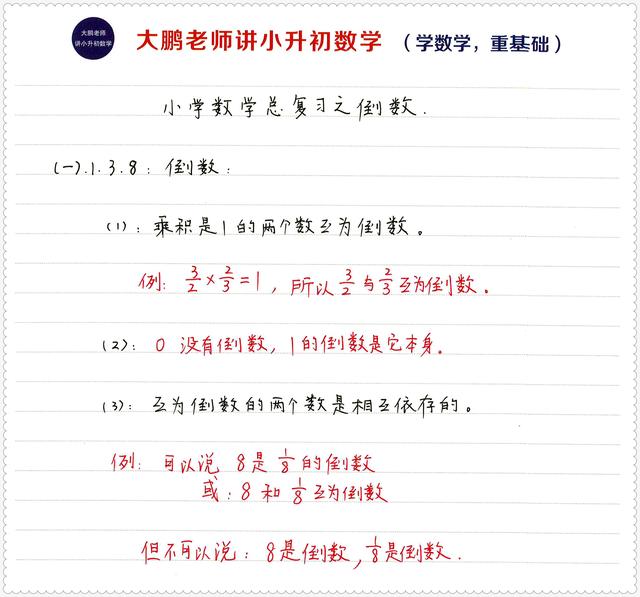 大鹏老师
讲小升初数学
大鹏老师讲小升初数学 (学数学，重基础)
小学数学总复习之倒数.
(一).1.3.8：倒数：
(1)：乘积是1的两个数互为倒数。
例：3/2×2/3=1，所以3/2与2/3互为倒数。
(2)：0 没有倒数，1的倒数是它本身。
(3)：互为倒数的两个数是相互依存的。
例：可以说 8是1/8的倒数
或：8和1/8互为倒数
但不可以说：8是倒数，1/8是倒数.